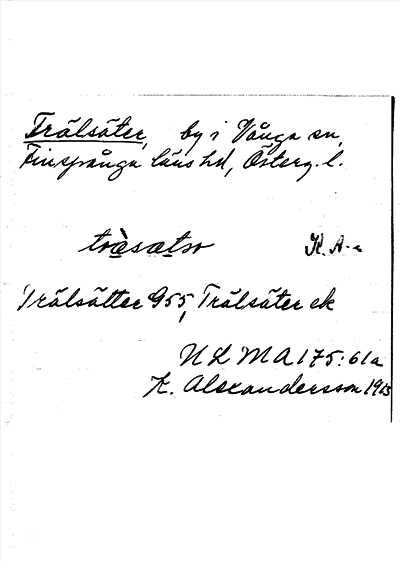 Trälsäter, by i Vånga sn,
Finspånga läns hd, Österg. l.
tràsætər K. A-n
Trälsätter G55, Trälsäter ek
ULMA 175:61a
K. Alexandersson 1913